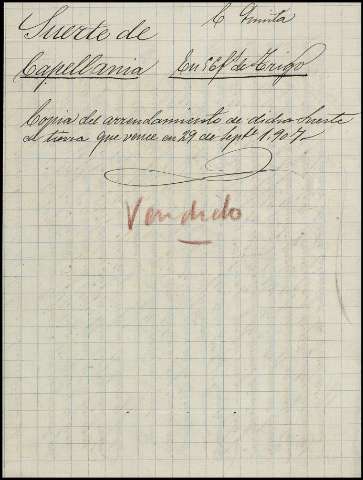 C Quinta
Suerte de
Capellania En 5 Ef.s de Trigo
Copia del arrendamiento de dicha suerte
de tierra que vence en 29 de Septe. 1907
Vendido